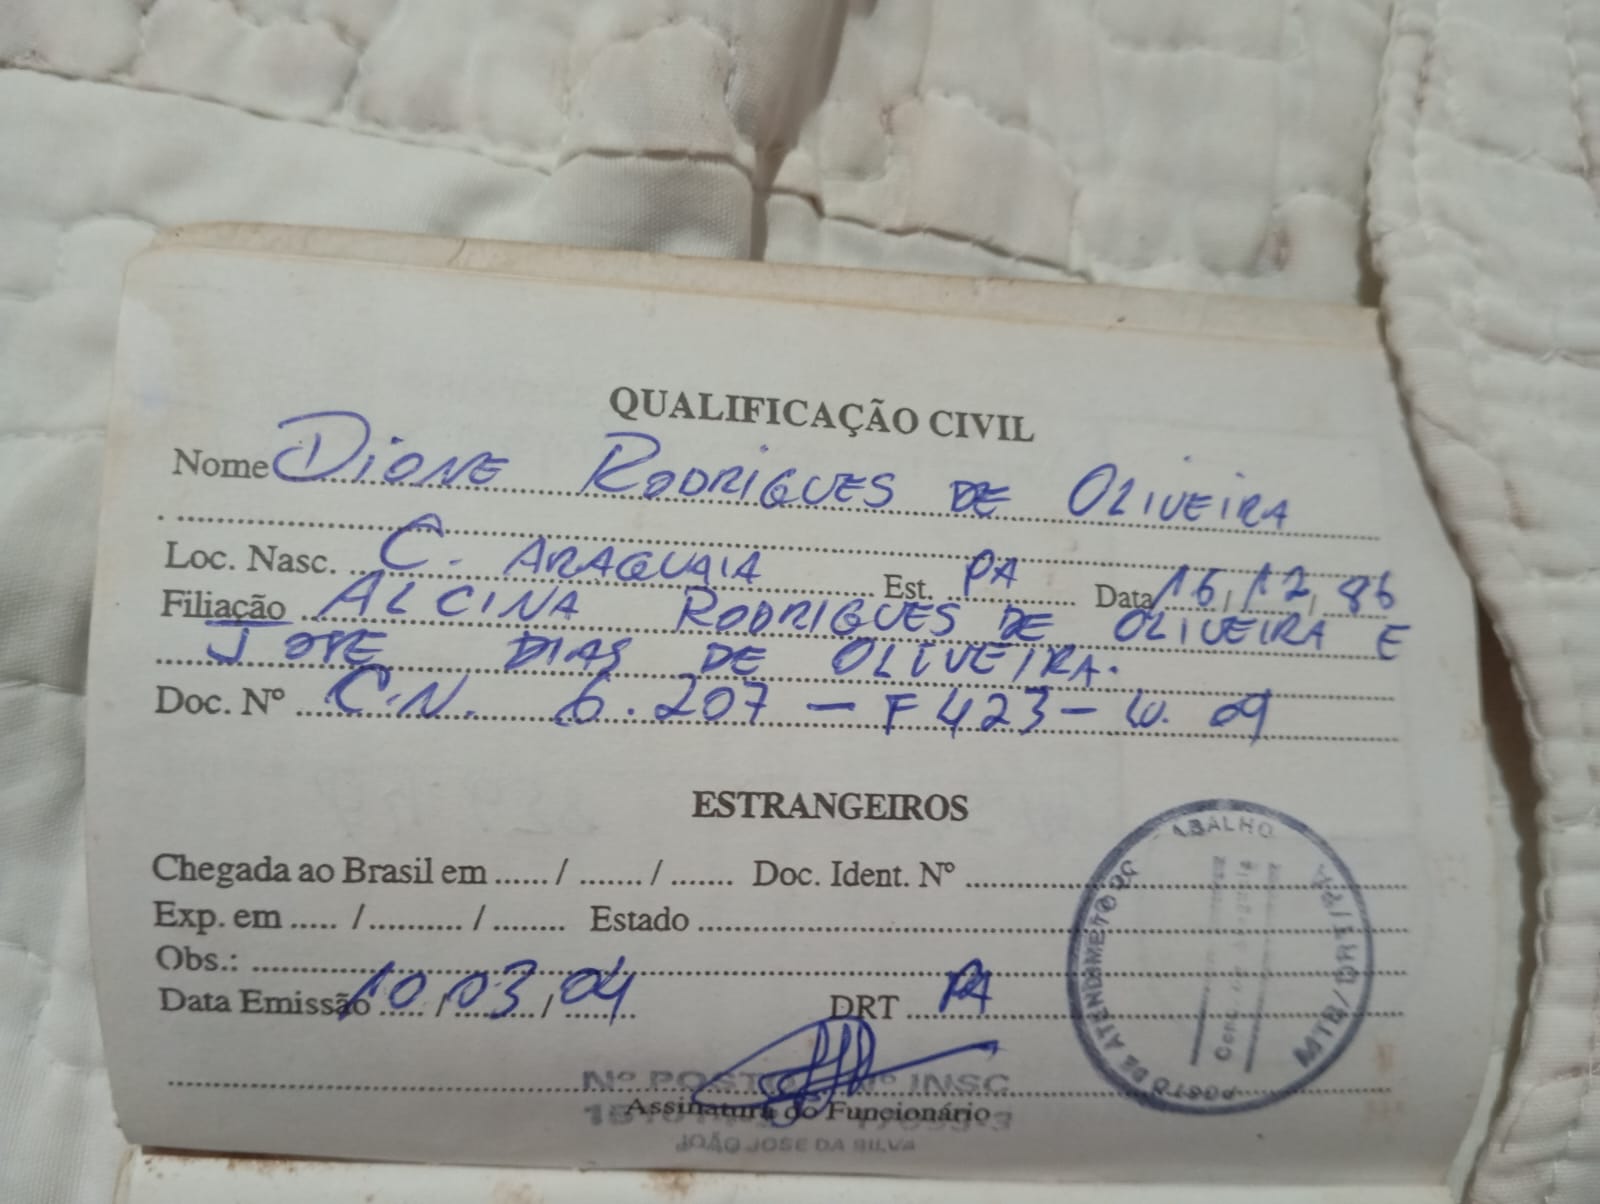 QUALIFICAÇÃO CIVIL
Nome DIONE RODRIGUES DE OLIVEIRA
Loc. Nasc. C. ARAGUAIA Est. PA Data 16/12/86
Filiação ALCINA RODRIGUES DE OLIVEIRA E
JOSE DIAS DE OLIVEIRA.
Doc. Nº C.N. 6.207 – F 423 – LV. 09
ESTRANGEIROS
Chegada ao Brasil em ...... / ....... / ....... Doc. Ident. Nº
Exp. em ..... / .......... / ........ Estado
Obs.:
Data Emissão 10/03/04 DRT PA
Nº POSTO Nº INSC
Assinatura do Funcionário
JOÃO JOSE DA SILVA
POSTO DE ATENDIMENTO DO ABALHO
MTB/DRT/PA